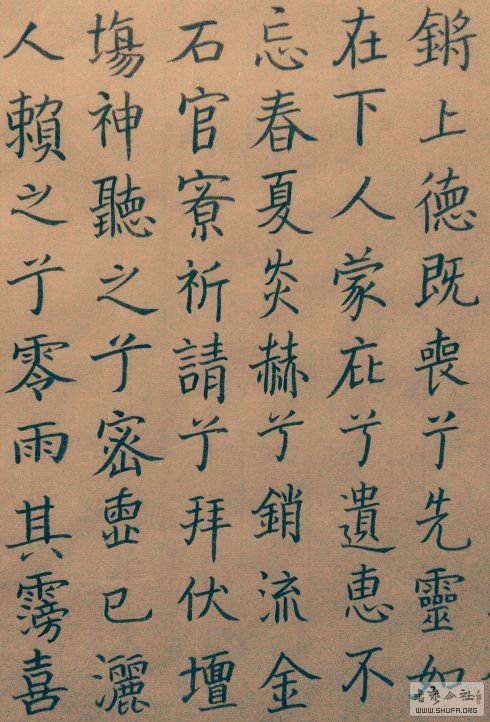 鏘上德既喪兮先靈如
在下人蒙庇兮遺惠不
忘春夏炎赫兮銷流金
石官寮祈請兮拜伏壇
塲神聽之兮密雲已灑
人賴之兮零雨其霶喜
书艺公社
WWW.SHUFA.ORG